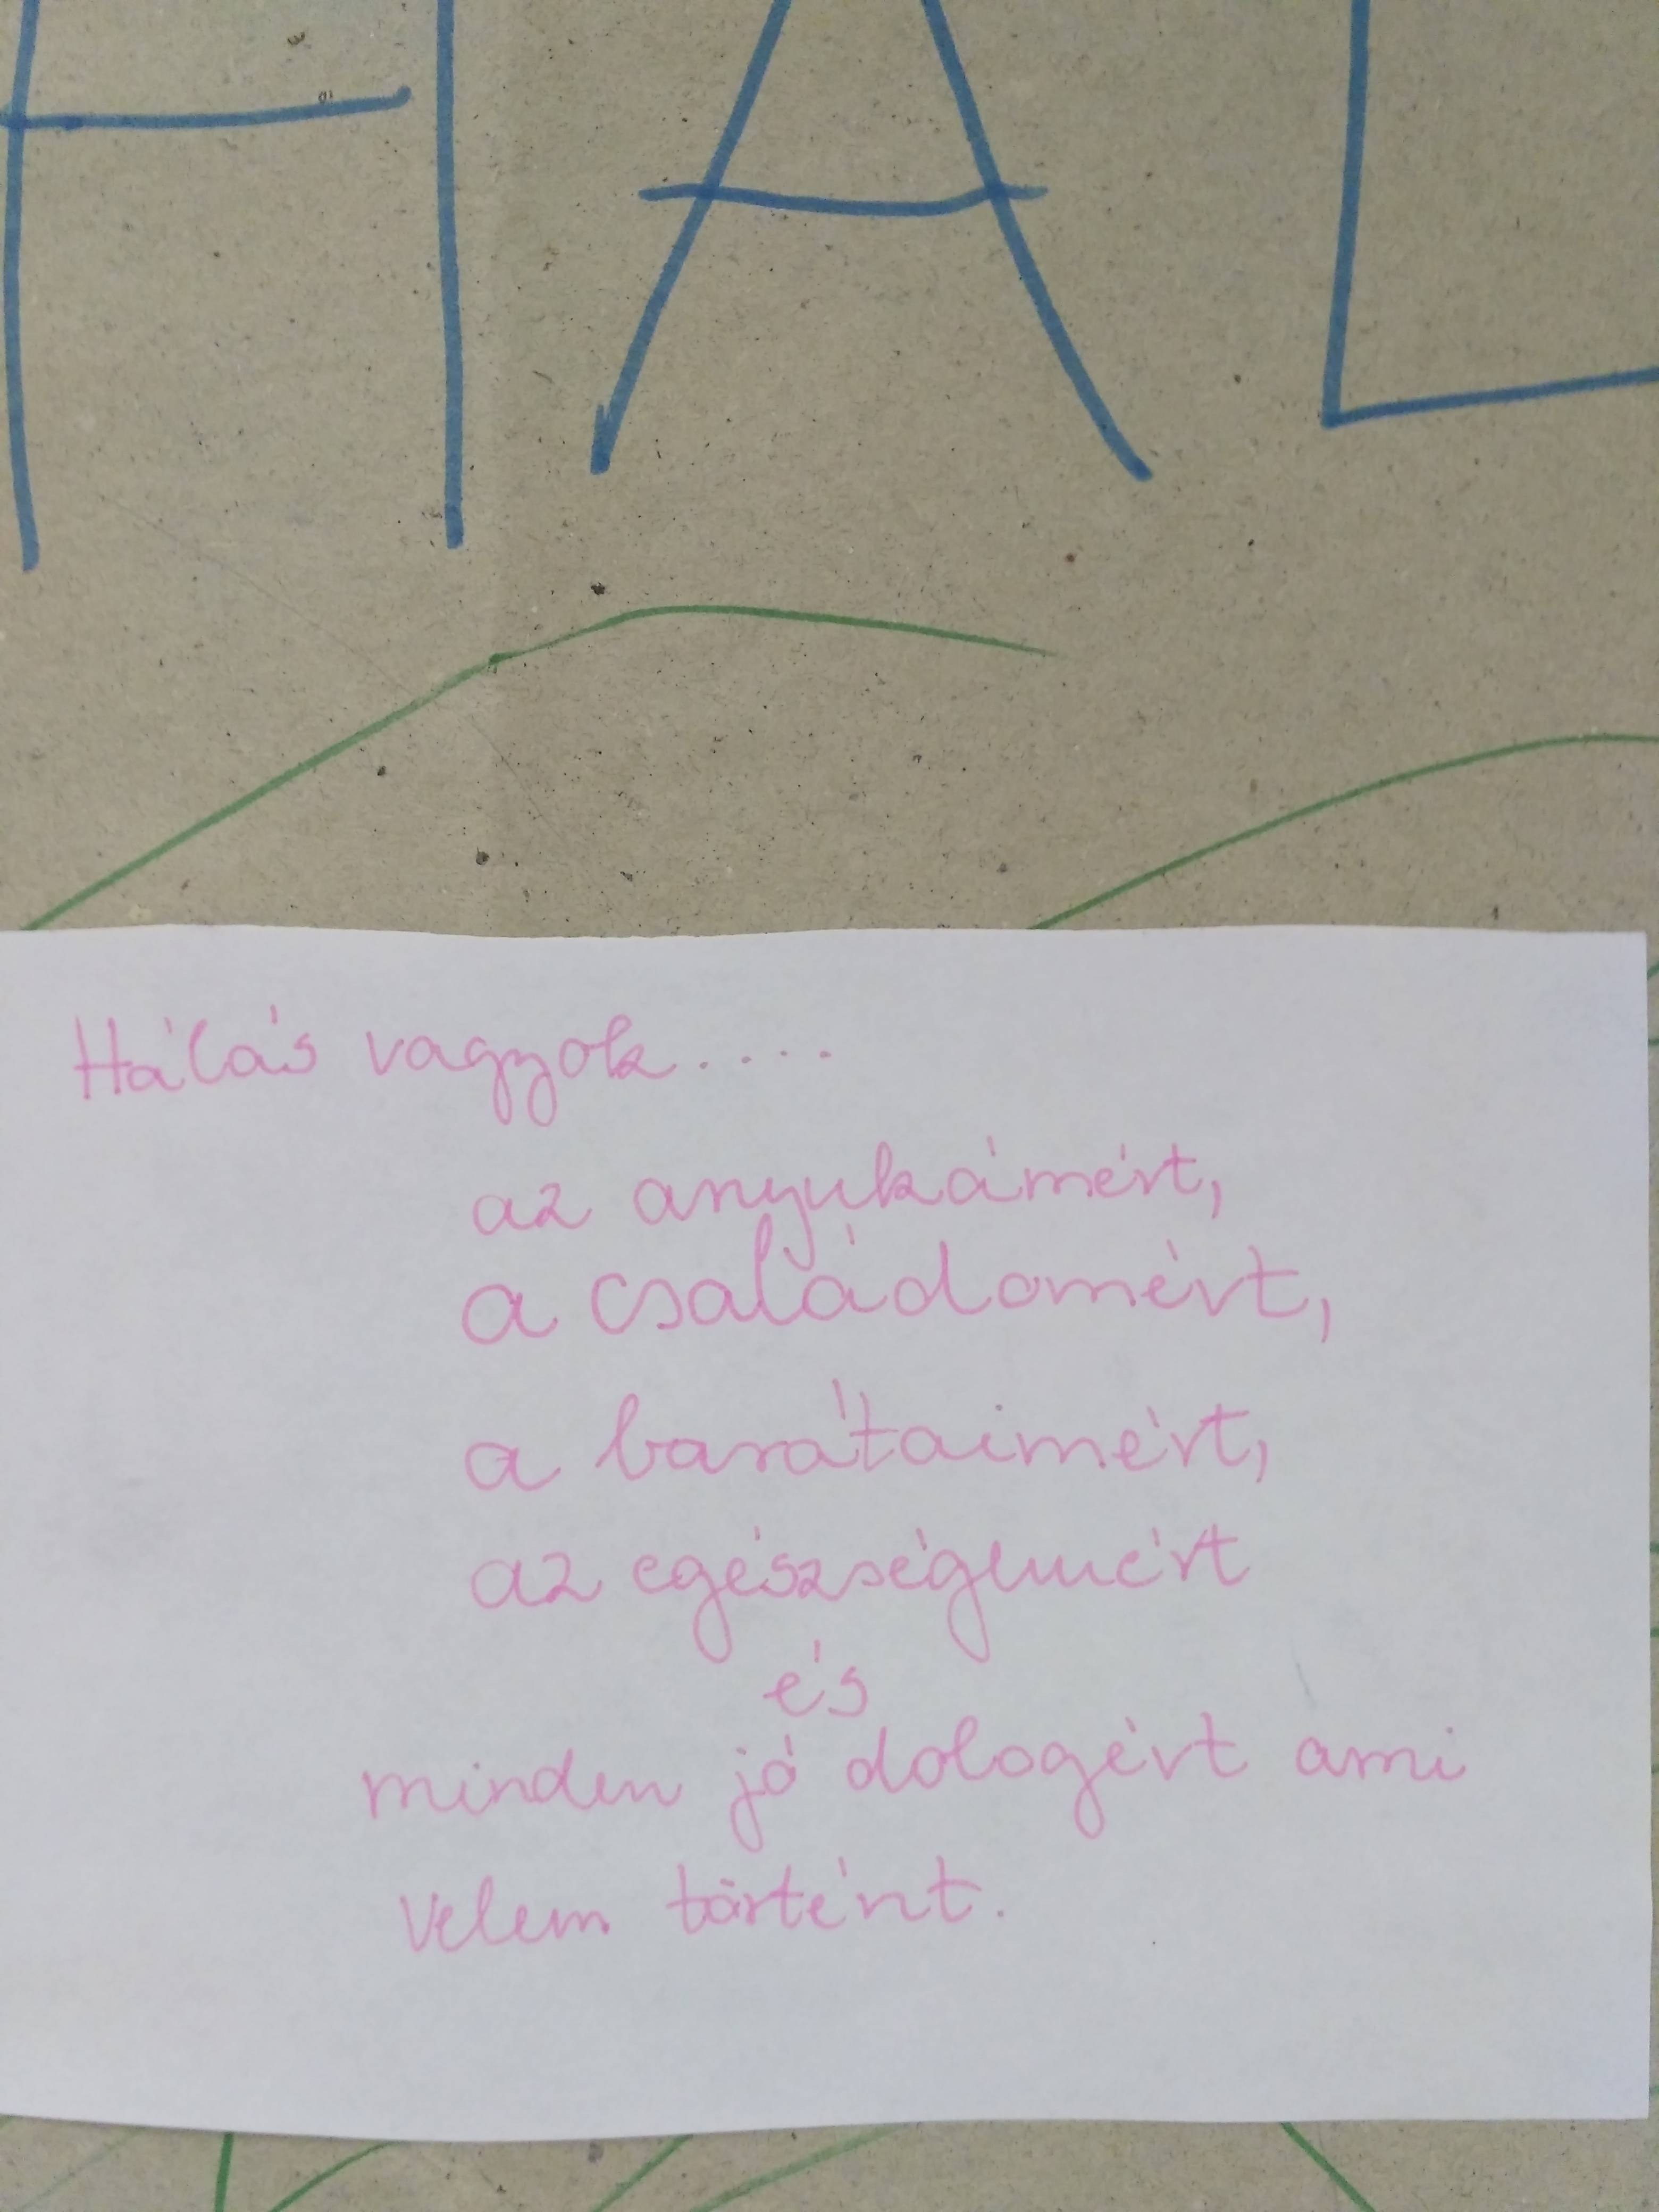 HAL
Hálás vagyok....
az anyukámért,
a családomért,
a barátaimért,
az egészségemért
és
minden jó dologért ami
velem történt.